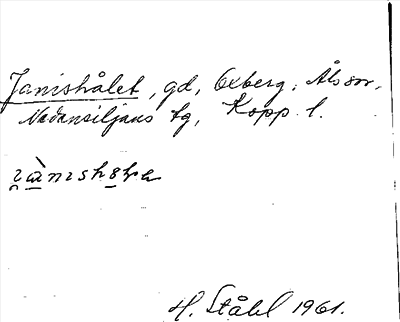 Janishålet, gd, Oxberg, Åls sn,
Nedansiljans tg, Kopp. l.
H. Ståhl 1961.